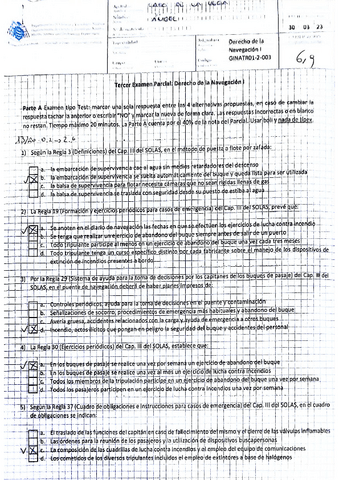 30 03 23
Derecho de la
Navegación I
GINATR01-2-003
6,9
Tercer Examen Parcial. Derecho de la Navegación I
Parte A Examen tipo Test: marcar una sola respuesta entre las 4 alternativas propuestas, en caso de cambiar la
respuesta tachar la anterior o escribir "NO" y marcar la nueva de forma clara. Las respuestas incorrectas o en blanco
no restan. Tiempo máximo 20 minutos. La Parte A cuenta por el 40% de la nota del Parcial. Usar boli y nada de lápiz.
1) Según la Regla 3 (Definiciones) del Cap. III del SOLAS, en el método de puesta a flote por zafada:
a. la embarcación de supervivencia cae al agua sin medios retardadores del descenso
b. la embarcación de supervivencia se suelta automáticamente del buque y queda lista para ser utilizada
c. la balsa de supervivencia para flotar necesita cámaras que no sean rígidas llenas de gas
d. la balsa de supervivencia se traslada con seguridad desde su puesto de estiba al agua
2) La Regla 19 (Formación y ejercicios periódicos para casos de emergencia) del Cap. III del SOLAS, prevé que:
a. Se anoten en el diario de navegación las fechas en que se efectúen los ejercicios de lucha contra incendio
b. Se tenga que realizar un ejercicio de abandono del buque siempre antes de salir de un puerto
c. Todo tripulante participe al menos en un ejercicio de abandono del buque una vez cada tres meses
d. Todo tripulante tenga un curso específico distinto por cada fabricante sobre el manejo de los dispositivos de
extinción de incendios presentes a bordo.
3) Por la Regla 29 (Sistema de ayuda para la toma de decisiones por los capitanes de los buques de pasaje) del Cap. III del
SOLAS, en el puente de navegación deberá de haber planes impresos de:
a. Controles periódicos, ayuda para la toma de decisiones en el puente y contaminación
b. Señalizaciones de socorro, procedimientos de emergencia más habituales y abandono del buque
c. Avería gruesa, accidentes relacionados con la carga y ayuda de emergencia a otros buques
d. Incendio, actos ilícitos que pongan en peligro la seguridad del buque y accidentes del personal
4) La Regla 30 (Ejercicios periódicos) del Cap. III del SOLAS, establece que:
a. En los buques de pasaje se realice una vez por semana un ejercicio de abandono del buque
b. En los buques de pasaje se realice una vez al mes un ejercicio de lucha contra incendios
c. Todos los miembros de la tripulación participen en un ejercicio de abandono del buque una vez por semana
d. Todos los pasajeros participen en un ejercicio de lucha contra incendios una vez por semana
5) Según la Regla 37 (Cuadro de obligaciones e instrucciones para casos de emergencia) del Cap. III del SOLAS, en el cuadro
de obligaciones se indican:
a. El traslado de las funciones del capitán en caso de fallecimiento del mismo y el cierre de las válvulas inflamables
b. Las órdenes para la reunión de los pasajeros y la utilización de dispositivos buscapersonas
c. La composición de las cuadrillas de lucha contra incendios y el empleo del equipo de comunicaciones
d. Los cometidos de los diversos tripulantes incluidos el empleo de extintores a base de halógenos